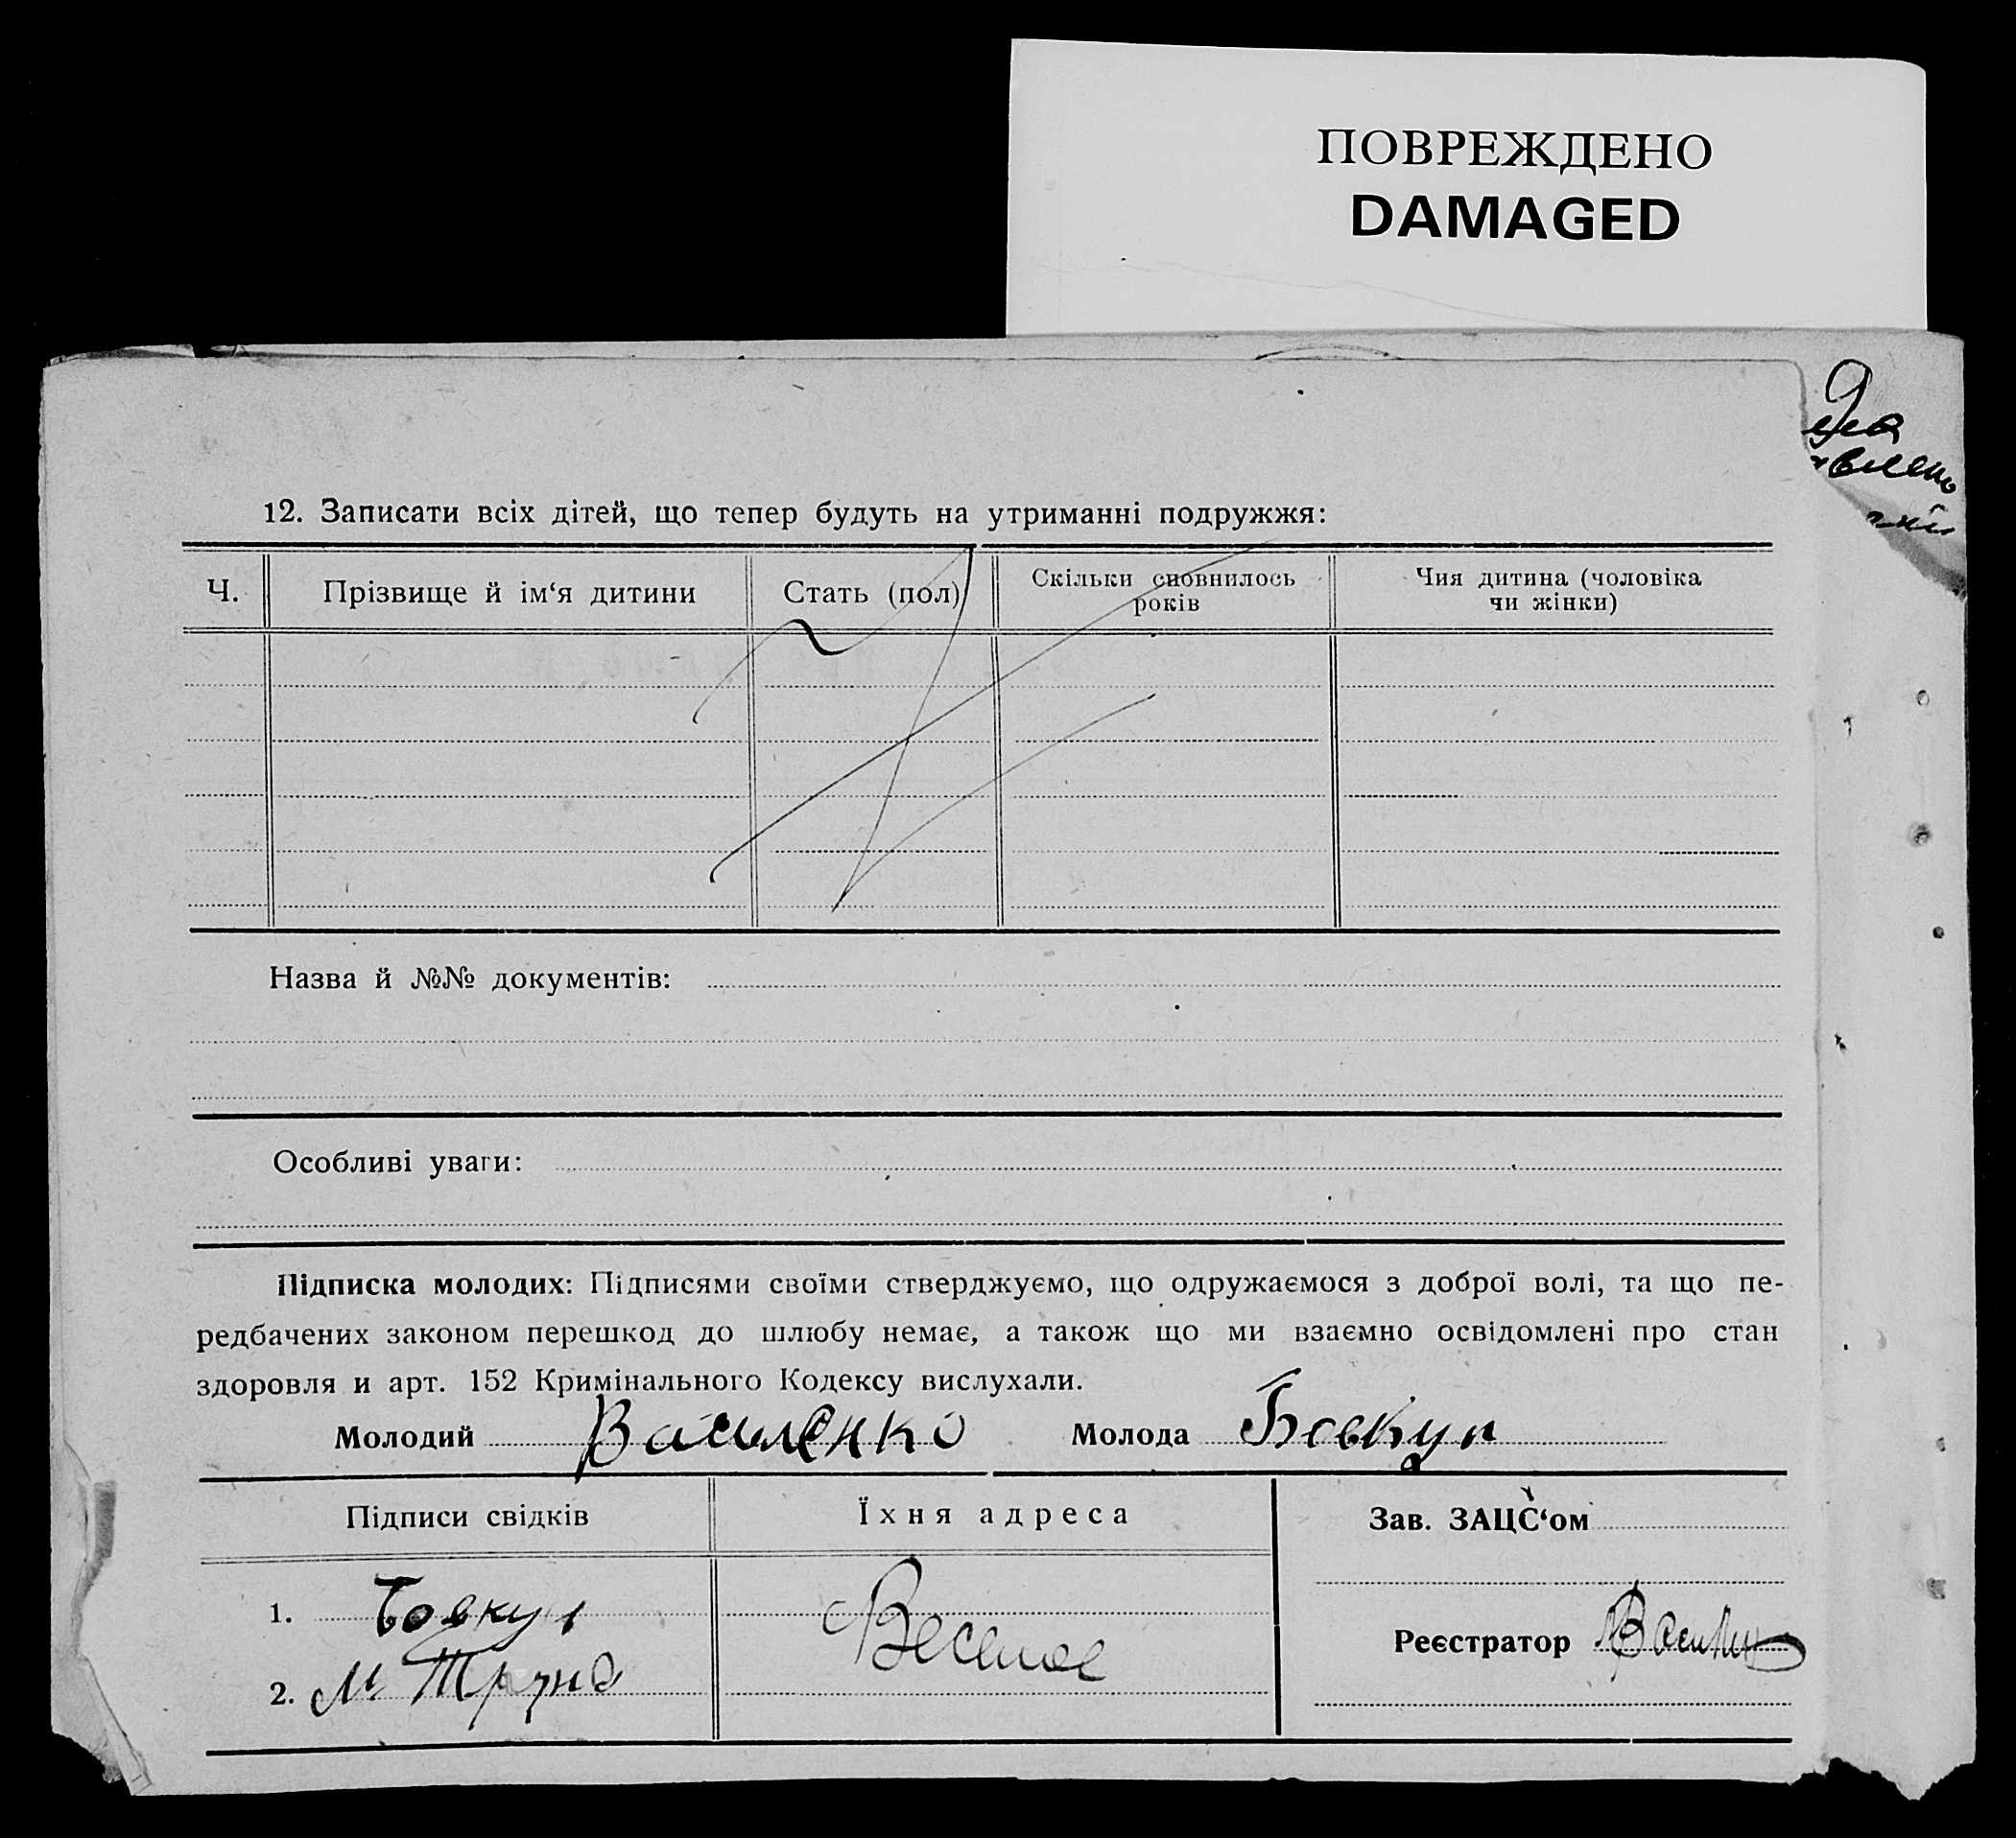 ПОВРЕЖДЕНО
DAMAGED
12. Записати всіх дітей, що тепер будуть на утриманні подружжя:
Ч.
Прізвище й ім‘я дитини
Стать (пол)
Скільки сповнилось
років
Чия дитина (чоловіка
чи жінки)
Назва й №№ документів:
Особливі уваги:
Підписка молодих: Підписями своїми стверджуємо, що одружаємося з доброї волі, та що пе-
редбачених законом перешкод до шлюбу немає, а також що ми взаємно освідомлені про стан
здоровля и арт. 152 Кримінального Кодексу вислухали.
Молодий Василенко Молода Бовкун
Підписи свідків
Їхня адреса
Зав. ЗАЦС‘ом
1. Бовкун
Веселое
Реєстратор
2. М